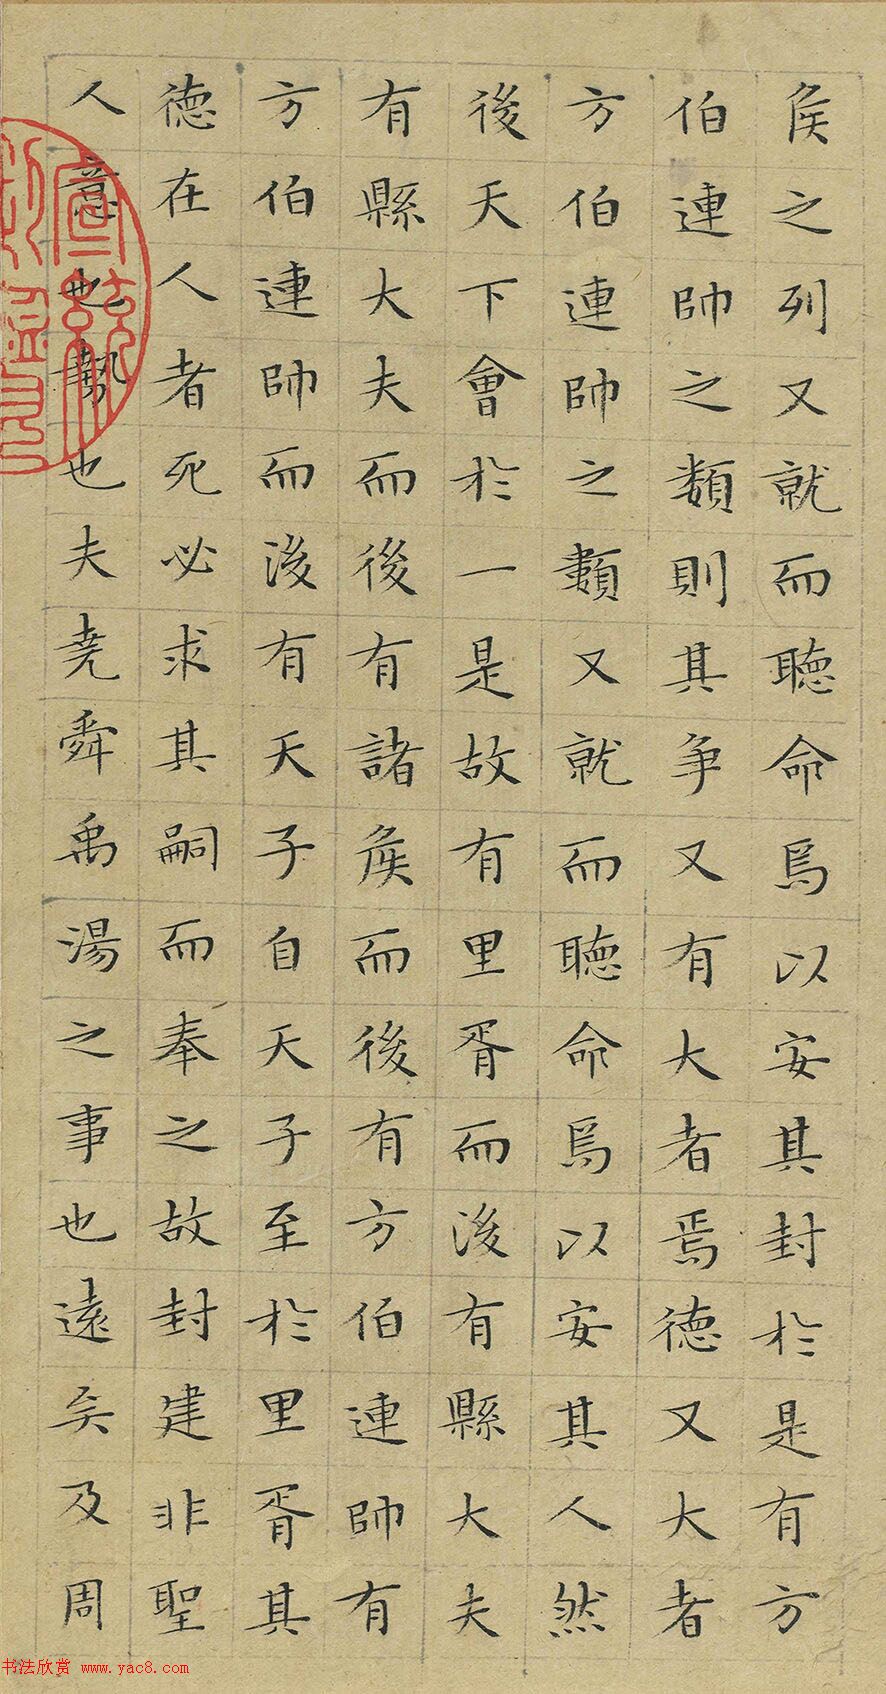 矦之列又就而聽命焉以安其封於是有方
伯連帥之類則其爭又有大者焉德又大者
方伯連帥之類又就而聽命焉以安其人然
後天下會於一是故有里胥而後有縣大夫
有縣大夫而後有諸矦而後有方伯連帥有
方伯連帥而後有天子自天子至於里胥其
德在人者死必求其嗣而奉之故封建非聖
人意也勢也夫堯舜禹湯之事也遠矣及周
书法欣赏 www.yac8.com